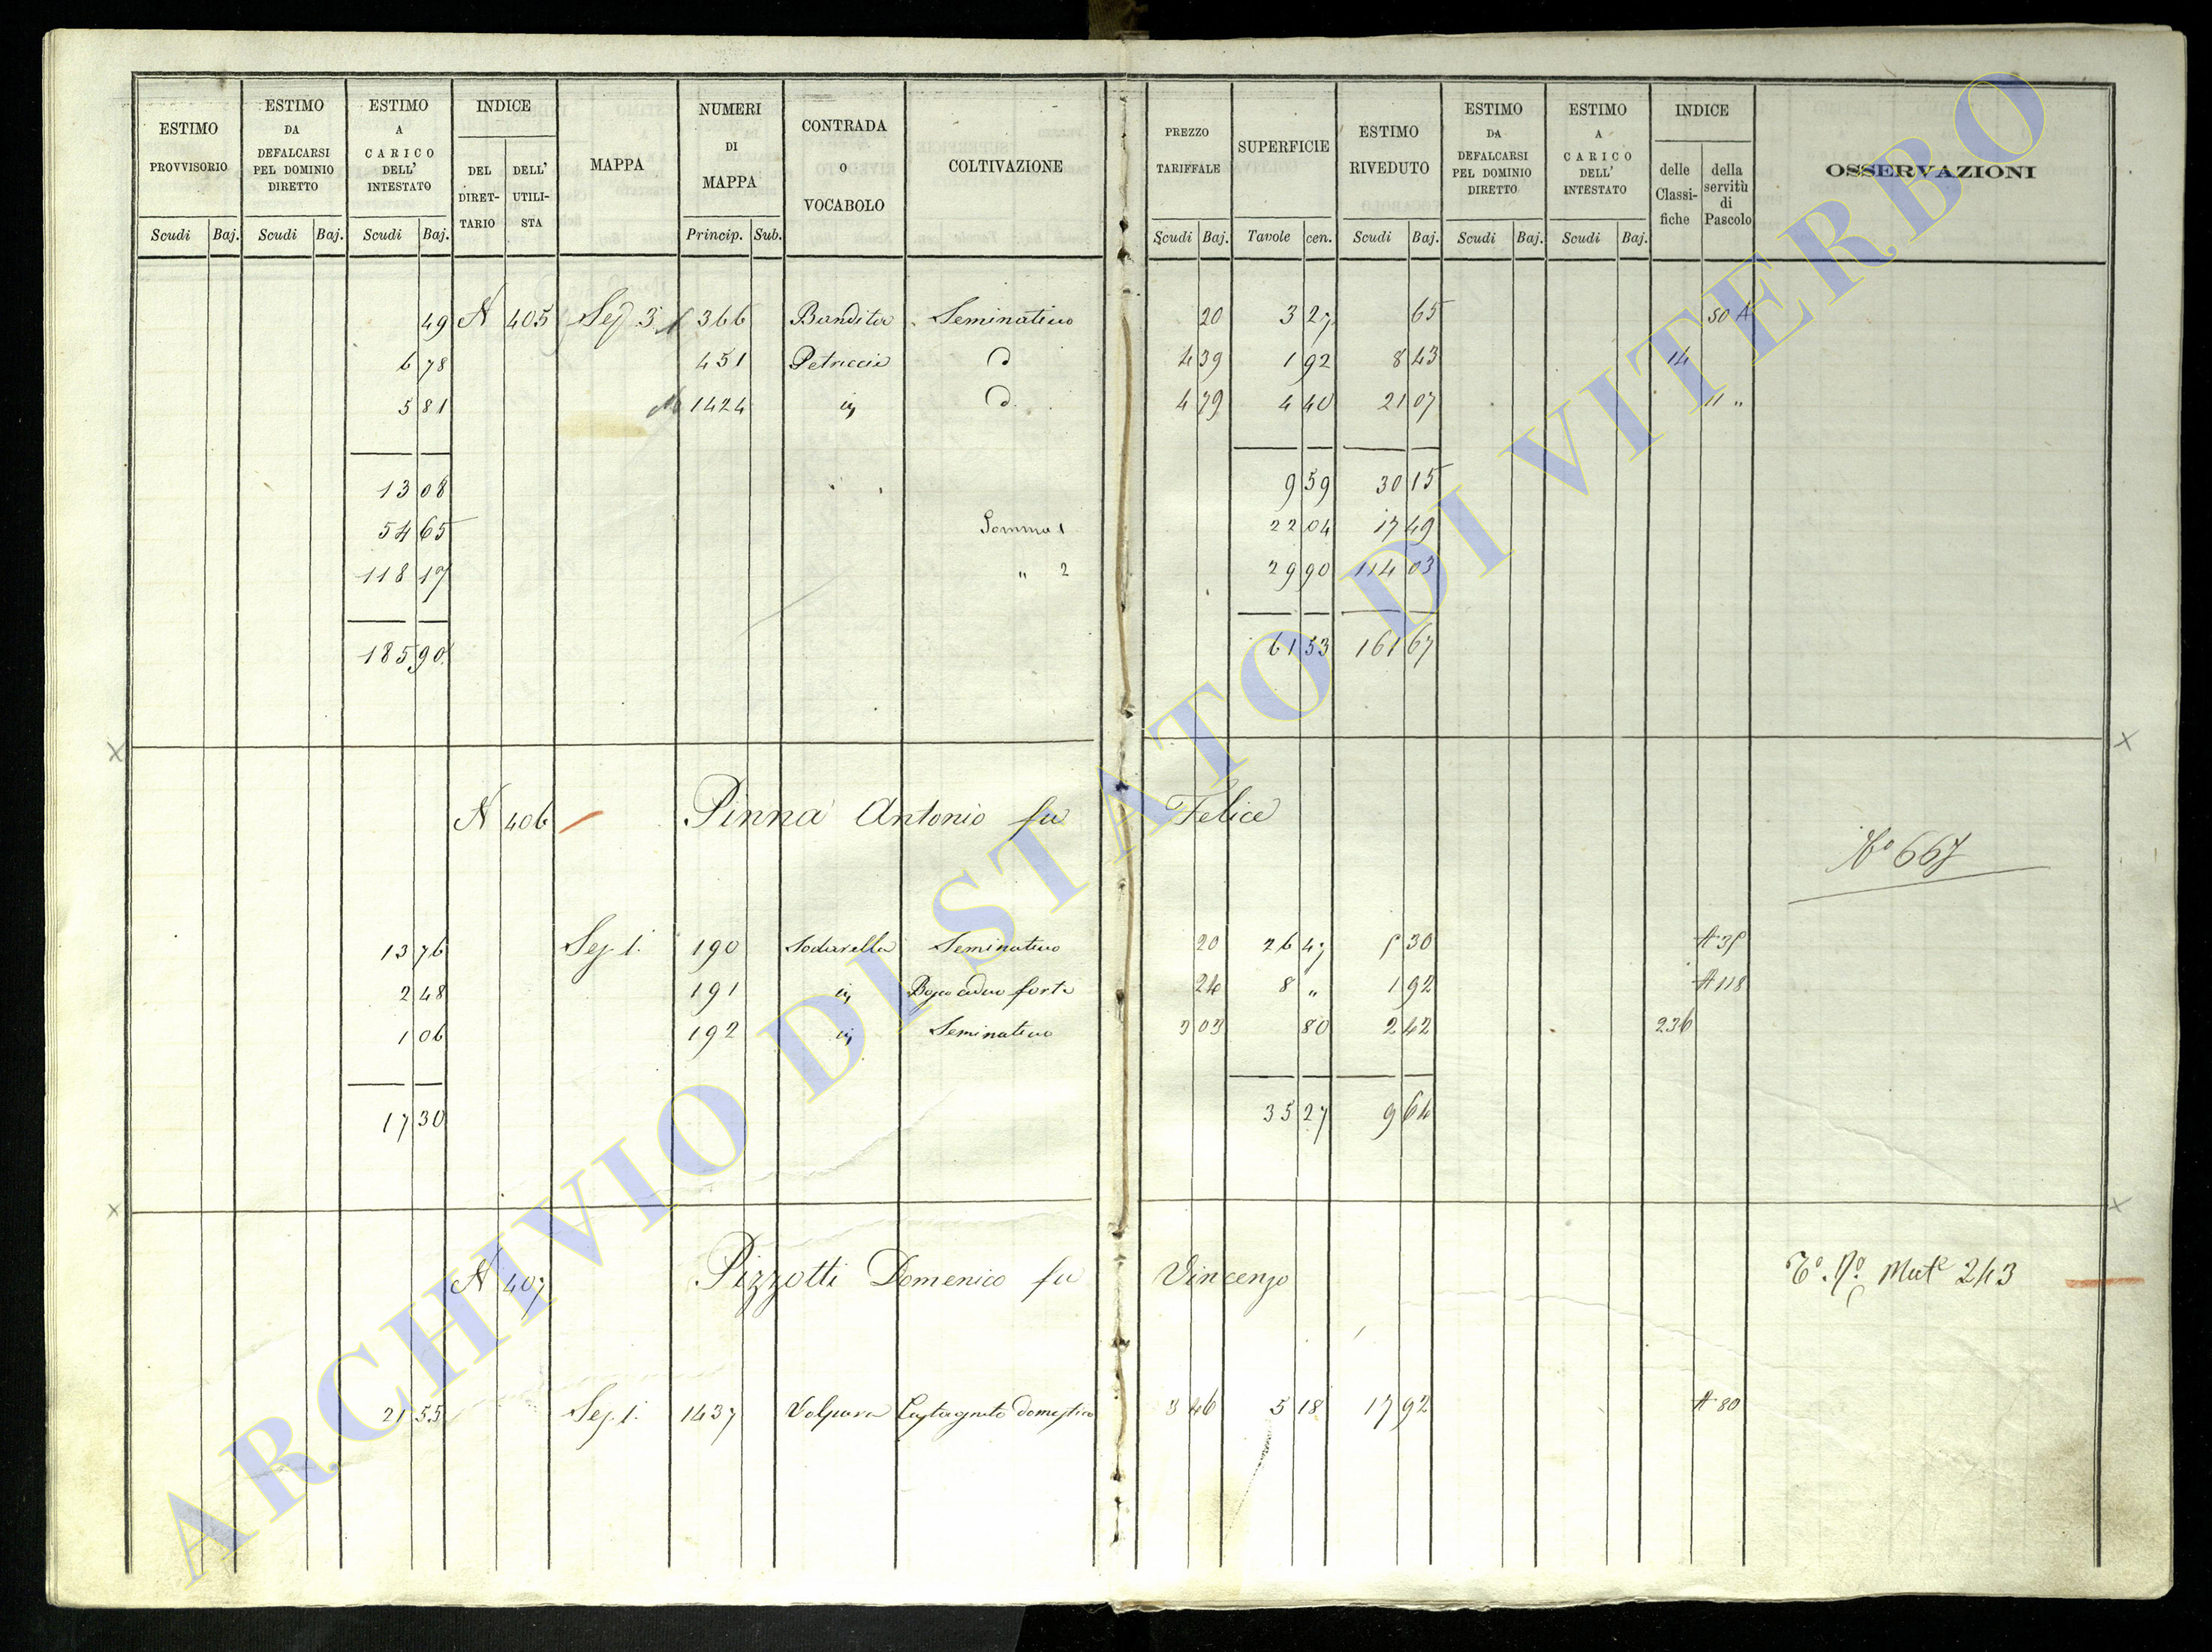 ESTIMO PROVVISORIO | ESTIMO DA DEFALCARSI PEL DOMINIO DIRETTO | ESTIMO A CARICO DELL' INTESTATO | INDICE DEL DIRET-TARIO | DELL' UTILI-STA | MAPPA | NUMERI DI MAPPA | CONTRADA O VOCABOLO | COLTIVAZIONE | PREZZO TARIFFALE | SUPERFICIE | ESTIMO RIVEDUTO | ESTIMO DA DEFALCARSI PEL DOMINIO DIRETTO | ESTIMO A CARICO DELL' INTESTATO | INDICE delle Classi-fiche | della servitù di Pascolo | OSSERVAZIONI
Scudi Baj. Scudi Baj. Scudi Baj. Princip. Sub. Scudi Baj. Tavole cen. Scudi Baj. Scudi Baj. Scudi Baj.
49 N 405 Sez 3 366 Bandita Seminativo 20 3 27 65 50 A
6 78 451 Petriccia d 4 39 1 92 8 43 14
5 81 1424 iy d. 4 79 4 40 21 07 11 "
13 08 9 59 30 15
54 65 Somma 1 22 04 17 49
118 17 " 2 29 90 114 03
185 90 61 53 161 67
N 406 Pinna Antonio fu Felice
No 667
13 76 Sez. 1. 190 Sodarella Seminativo 20 26 47 5 30 A 35
2 48 191 iy Bosco ceduo forte 24 8 " 1 92 A 118
1 06 192 iy Seminativo 3 03 80 2 42 236
17 30 35 27 9 64
N 407 Pizzotti Domenico fu Vincenzo
Mut 243
21 55 Sez. 1. 1437 Volpara Castagneto domestico 3 46 5 18 17 92 A 80
ARCHIVIO DI STATO DI VITERBO